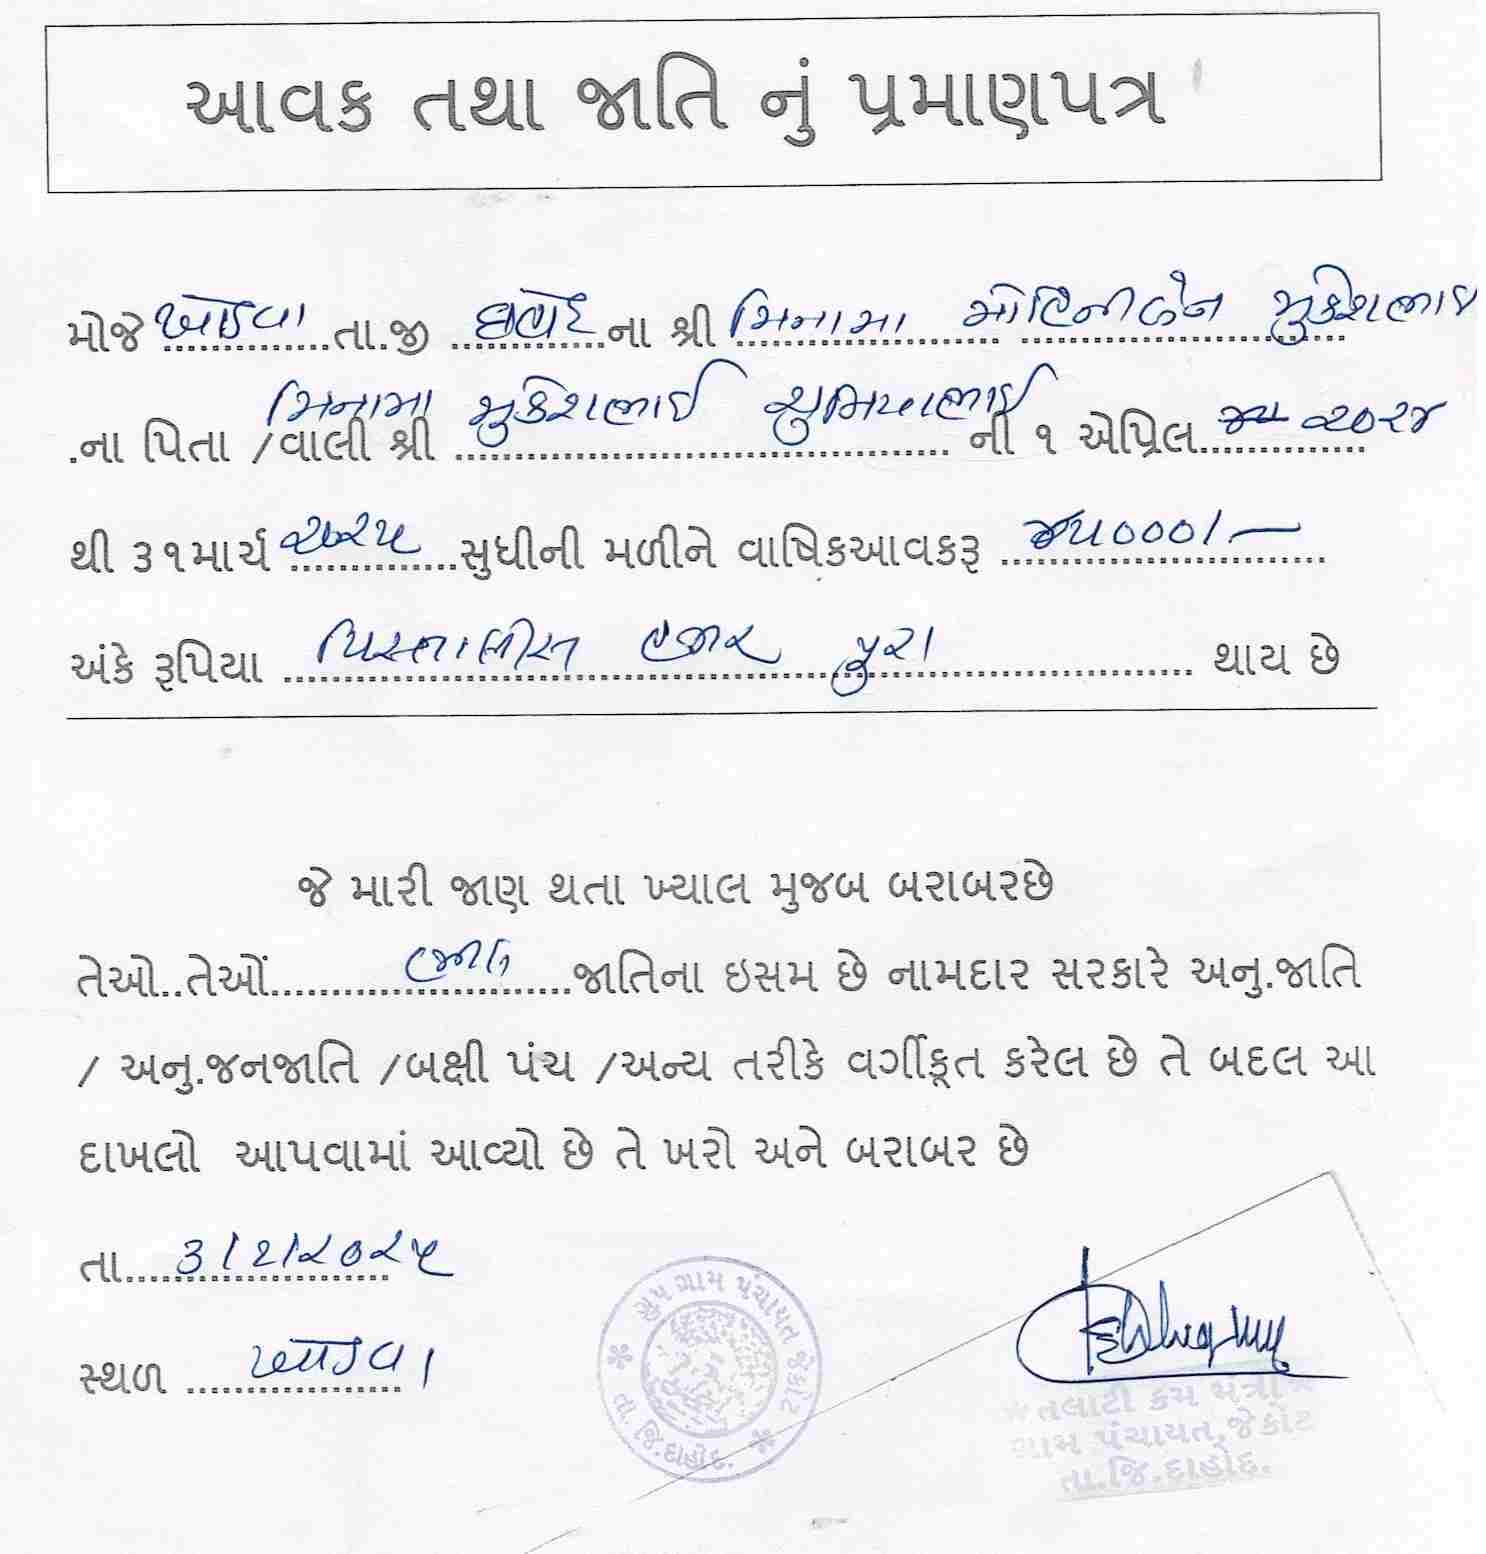 આવક તથા જાતિ નું પ્રમાણપત્ર
મોજે ખરોડવા તા.જી દાહોદ ના શ્રી મિનામા મોહિનીબેન મુકેશભાઇ
.ના પિતા /વાલી શ્રી મિનામા મુકેશભાઇ ની ૧ એપ્રિલ ૨૦૨૪
થી ૩૧માર્ચ ૨૦૨૫ સુધીની મળીને વાર્ષિકઆવકરૂ ૪૫૦૦૦/-
અંકે રૂપિયા પિસ્તાલીસ હજાર પુરા થાય છે
જે મારી જાણ થતા ખ્યાલ મુજબ બરાબરછે
તેઓ..તેઓં જાતિના ઇસમ છે નામદાર સરકારે અનુ.જાતિ
/ અનુ.જનજાતિ /બક્ષી પંચ /અન્ય તરીકે વર્ગીકૃત કરેલ છે તે બદલ આ
દાખલો આપવામાં આવ્યો છે તે ખરો અને બરાબર છે
તા. ૩/૨/૨૦૨૫
સ્થળ
ગ્રુપ ગ્રામ પંચાયત જેકોટ
તા. જિ.દાહોદ.
તલાટી કમ મંત્રી
ગ્રામ પંચાયત, જેકોટ
તા.જિ.દાહોદ.